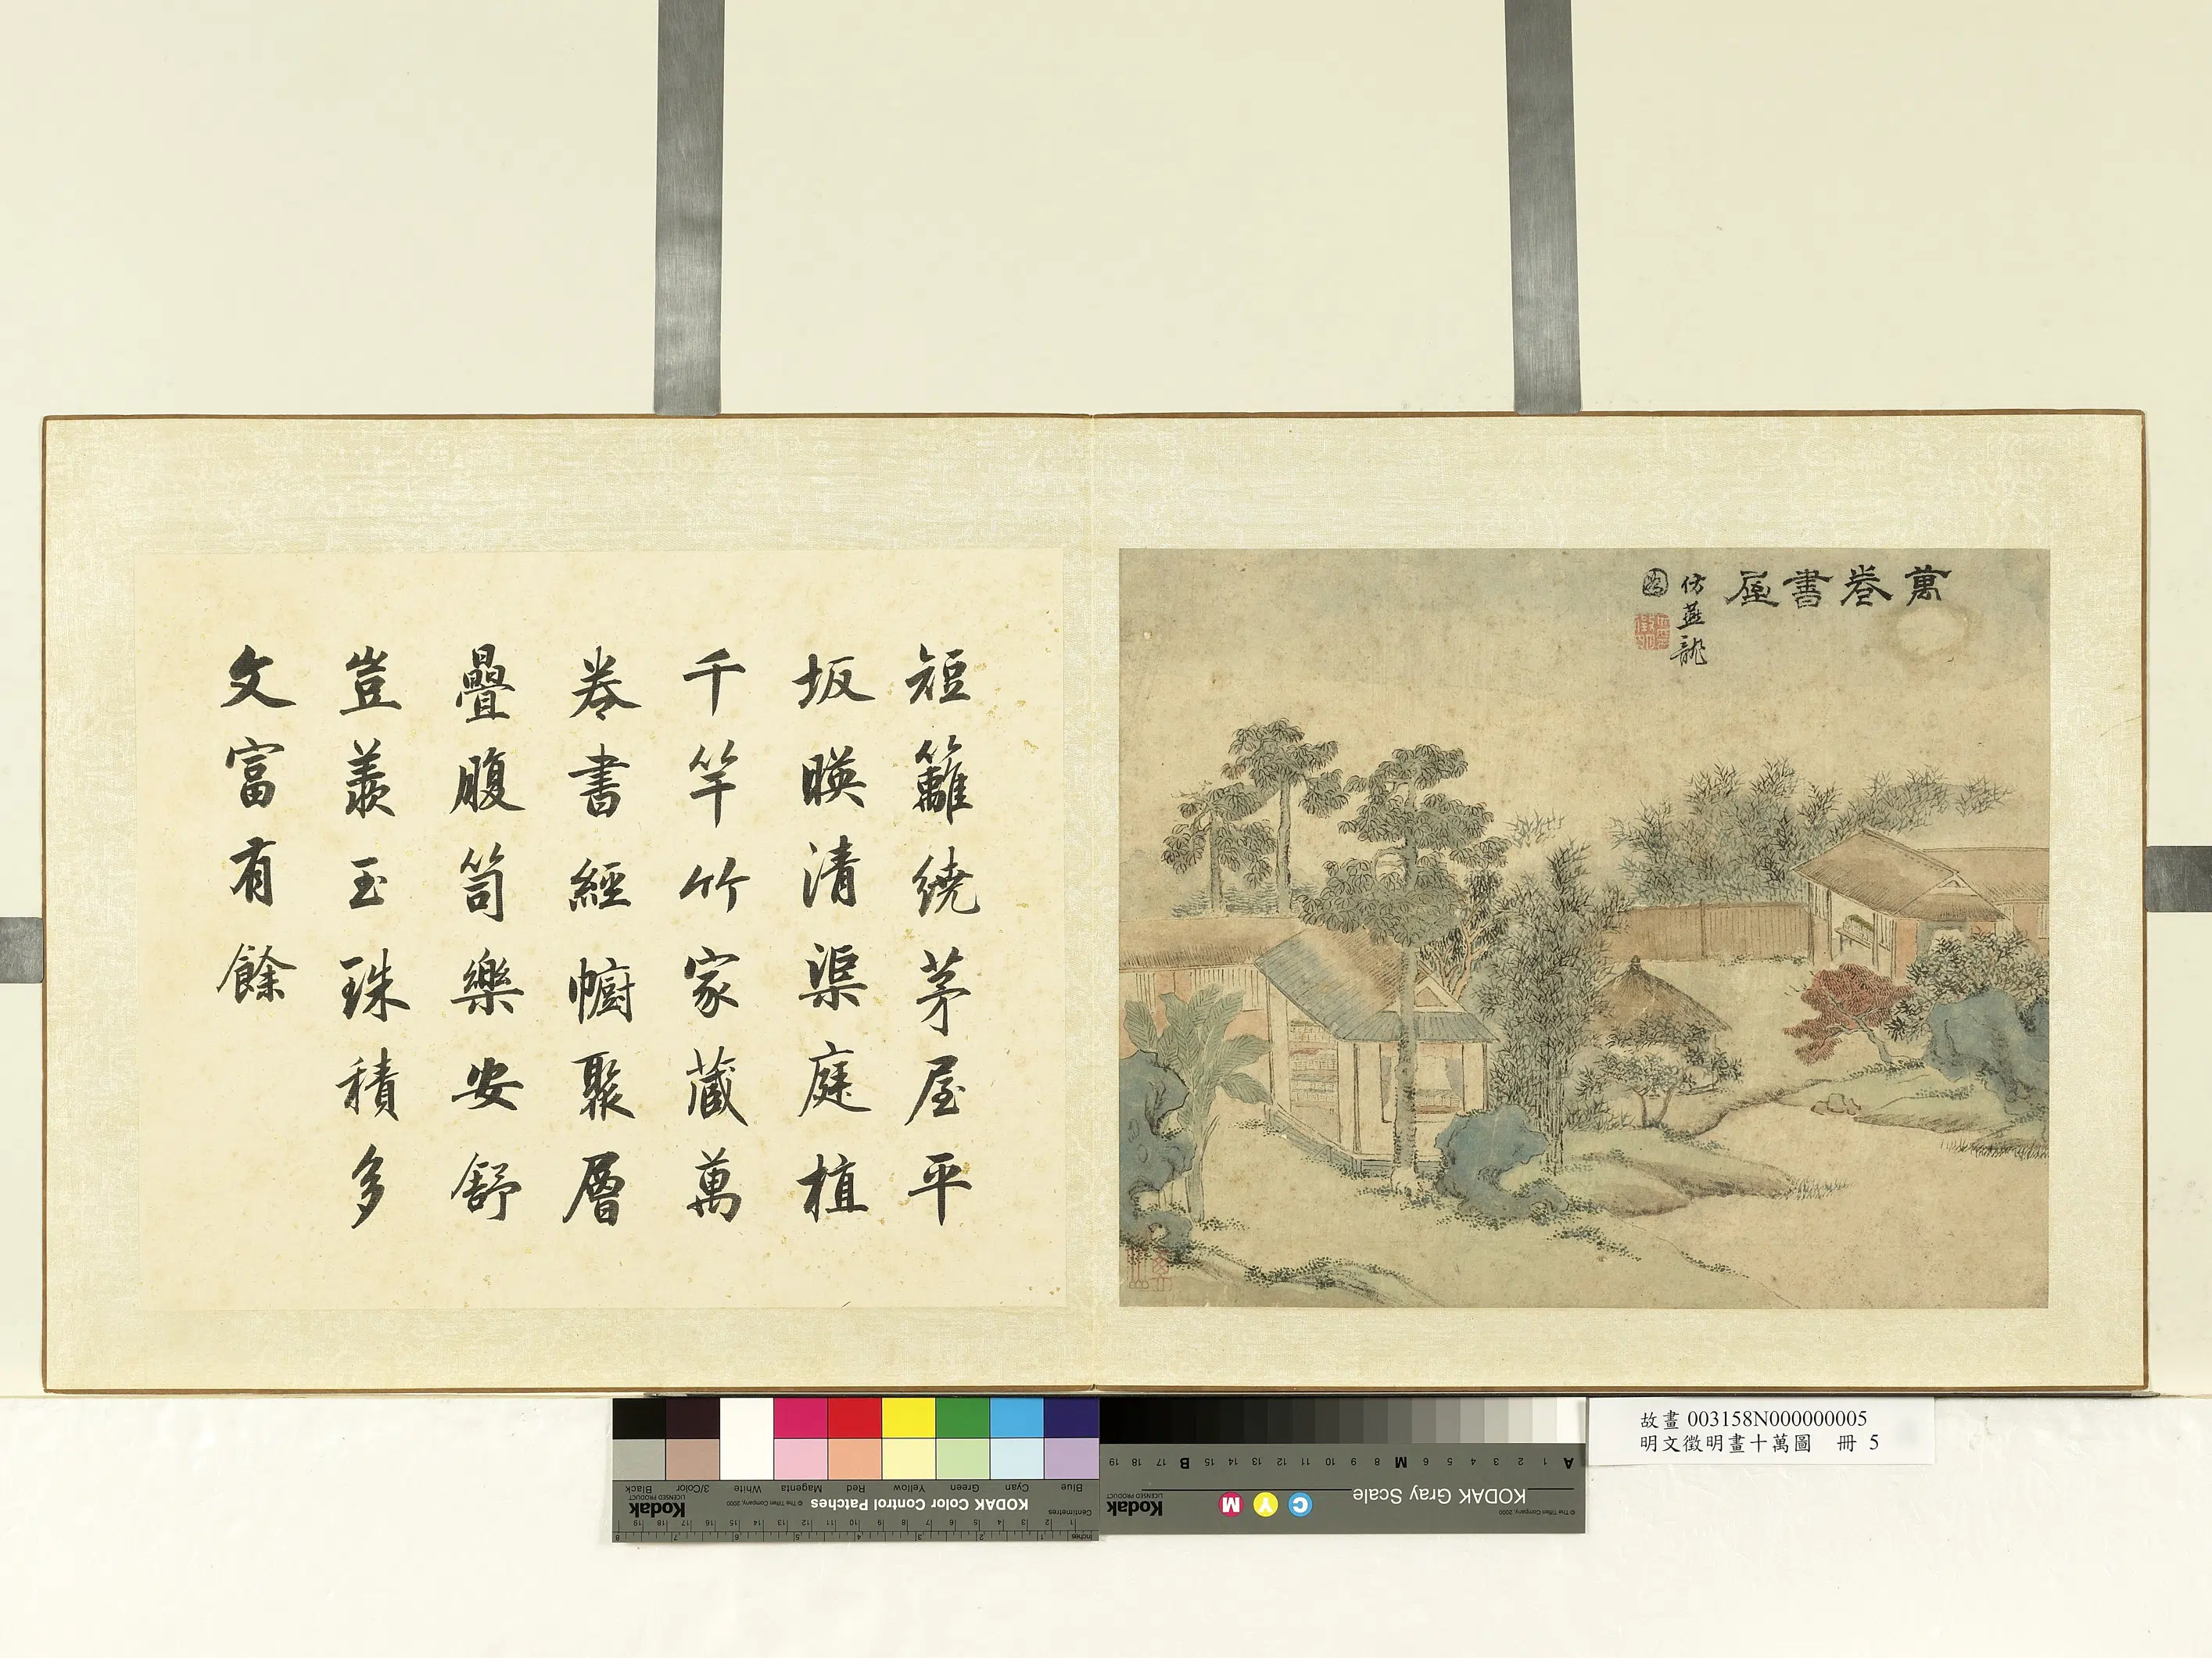 萬卷書屋
仿燕龍
圖
徵明
短籬繞茅屋平
坂暎清渠庭植
千竿竹家藏萬
卷書經幮聚層
疊腹笥樂安舒
豈羨玉珠積多
文富有餘
故畫 003158N000000005
明文徵明畫十萬圖 冊 5
KODAK Color Control Patches
© The Tiffen Company, 2000
Kodak
LICENSED PRODUCT
Blue Cyan Green Yellow Red Magenta White 3/Color Black
Centimetres
Inches
KODAK Gray Scale
© The Tiffen Company, 2000
C Y M
Kodak
LICENSED PRODUCT
A 1 2 3 4 5 6 M 8 9 10 11 12 13 14 15 B 17 18 19